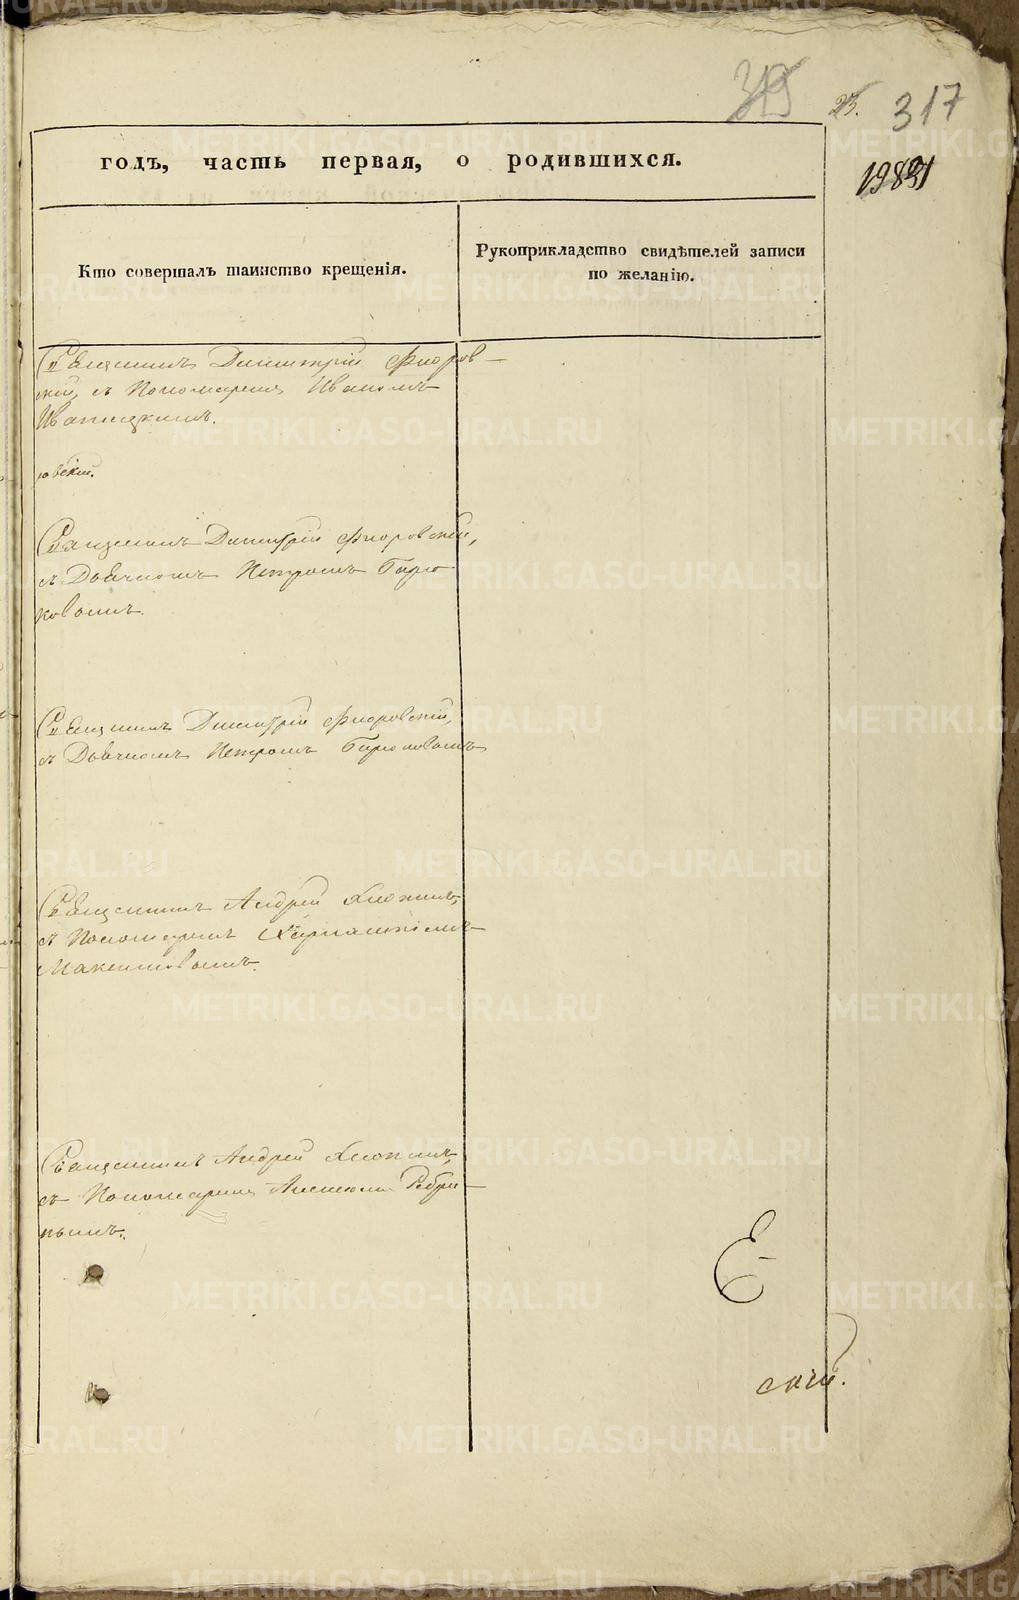 317
годъ, часть первая, о родившихся.
Кто совершалъ таинство крещенія.
Рукоприкладство свидѣтелей записи
по желанію.
Священникъ Димитрій Флоров
скій, съ Пономаремъ Иваномъ
овскій.
Священникъ Димитрій Флоровскій,
съ Дьячкомъ Петромъ Бирю
ковымъ.
Священникъ Димитрій Флоровскій,
съ Дьячкомъ Петромъ Бирюковымъ
Священникъ Андрей
съ Пономаремъ
Максимовымъ.
Священникъ Андрей
съ Пономаремъ Ребри
нымъ.
Е
скій.
METRIKI.GASO-URAL.RU